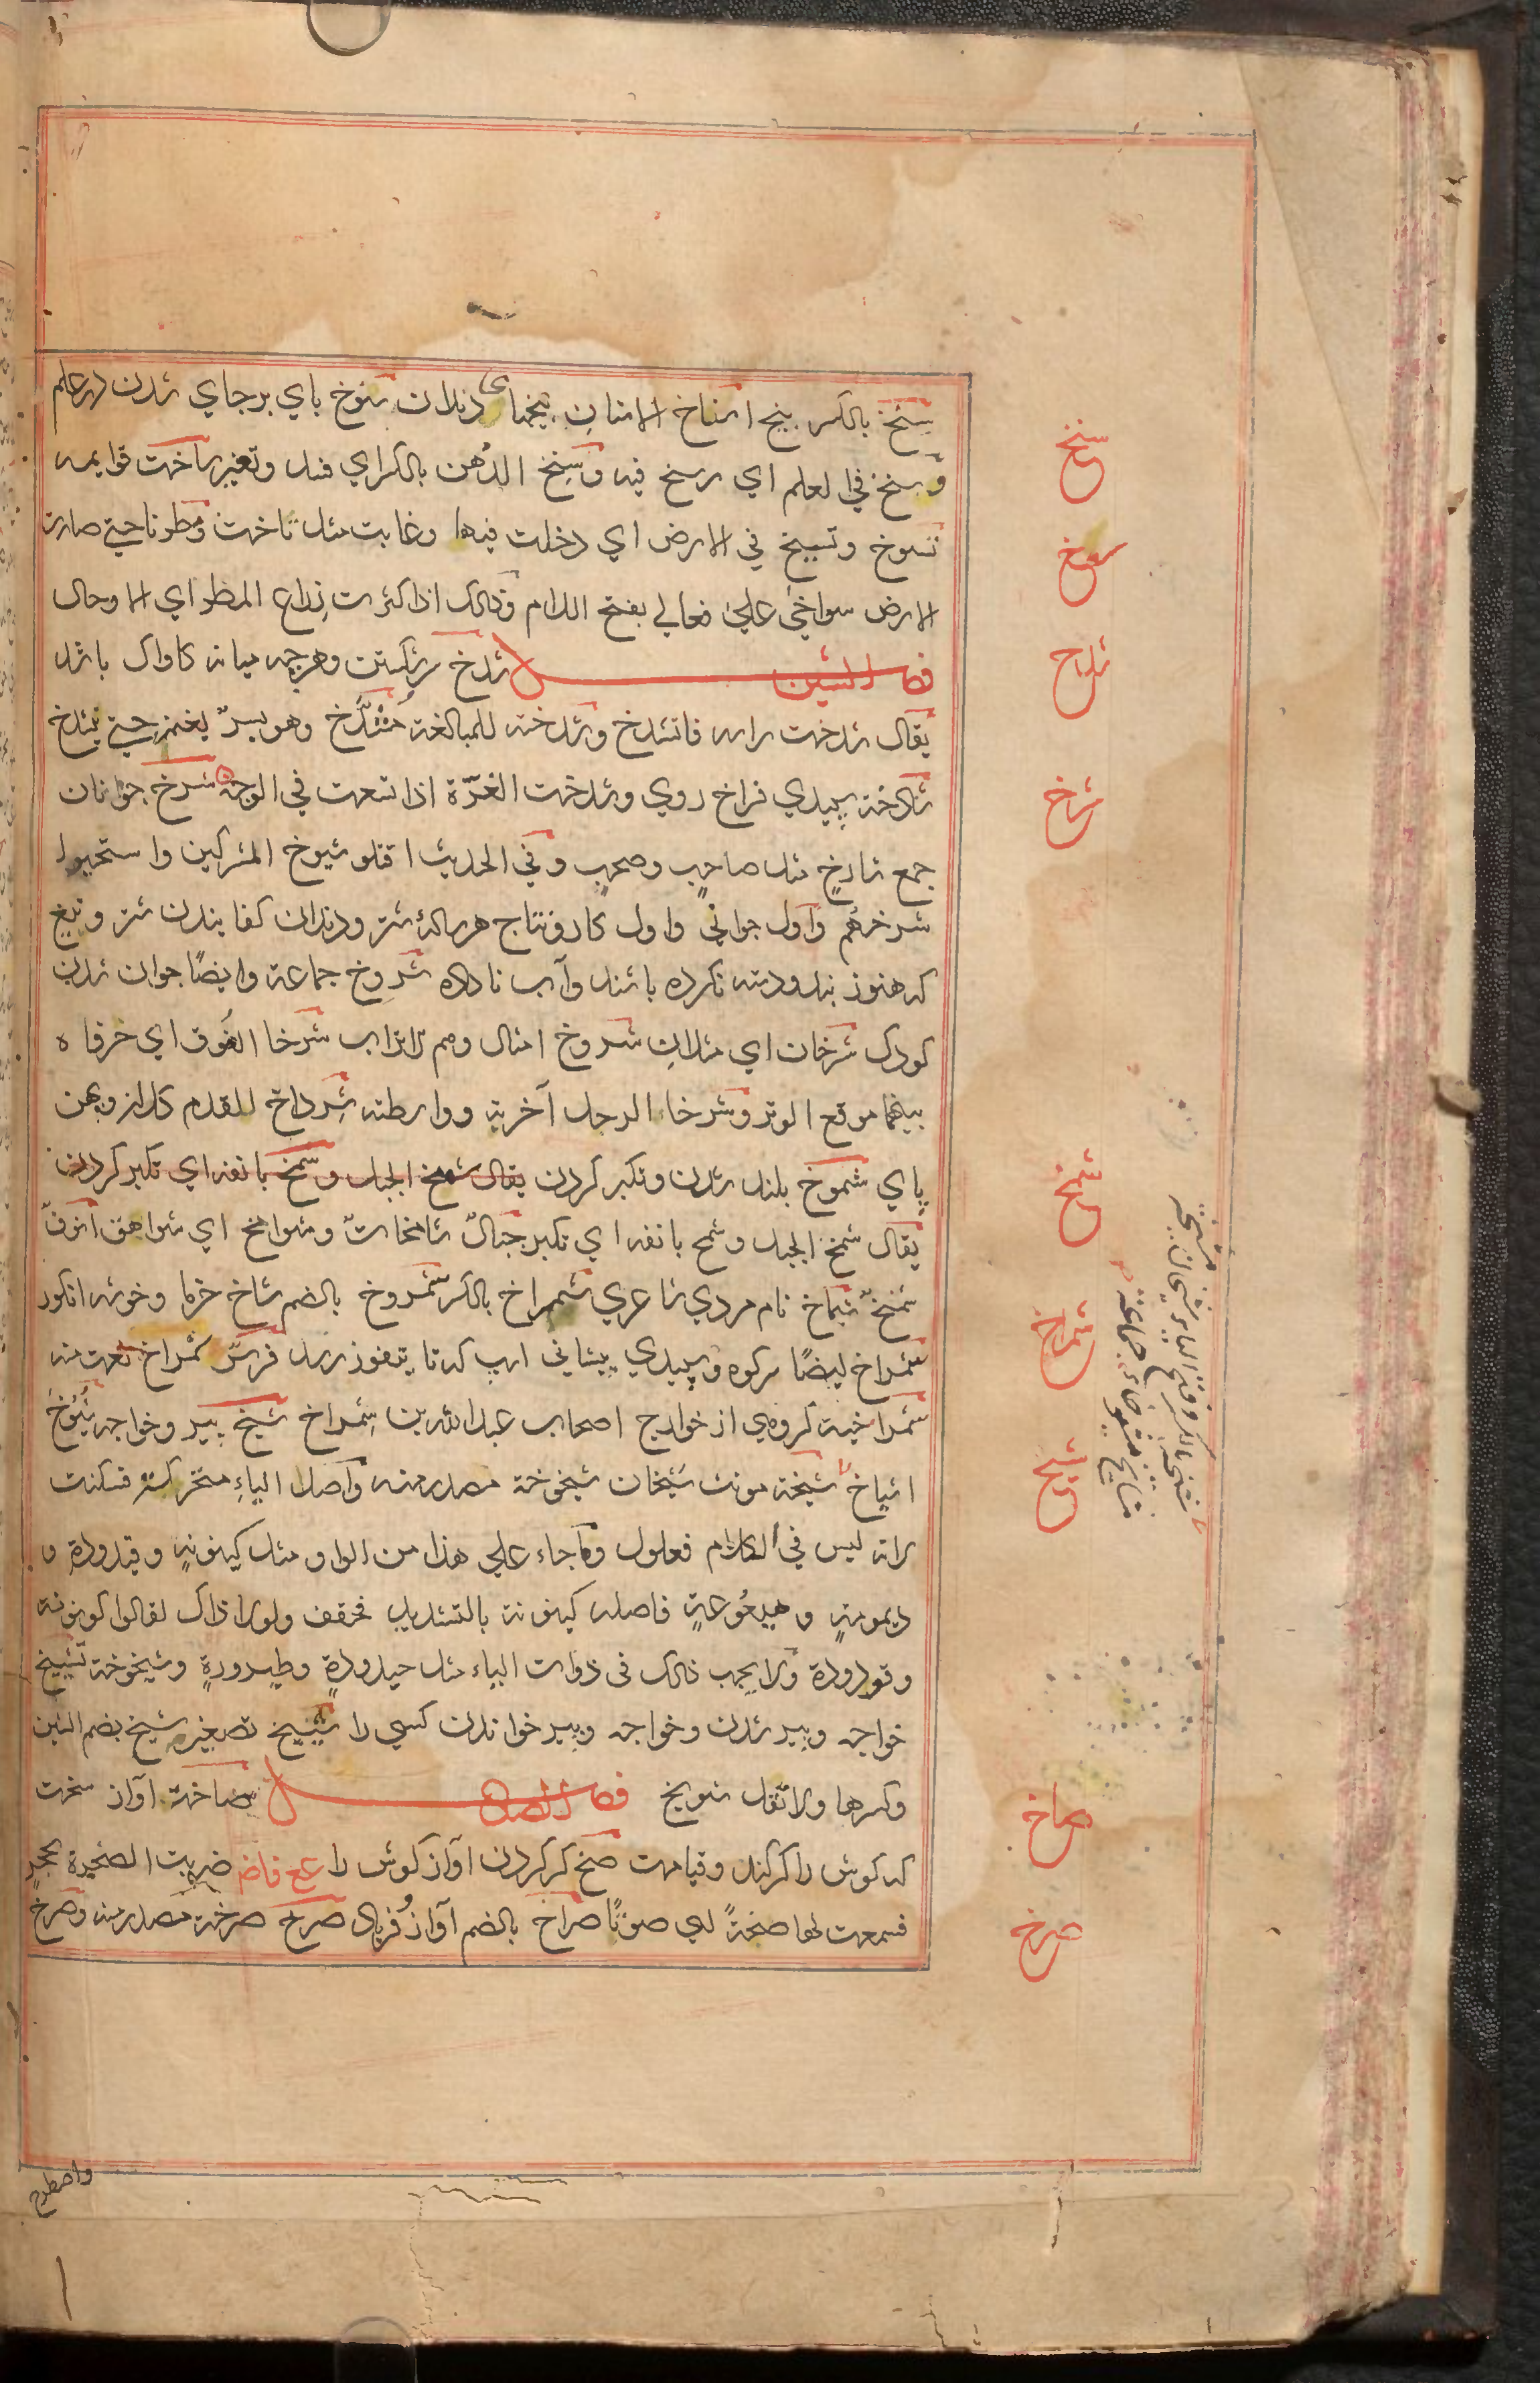 سنخ بالكسر بيخ اسناخ الاسنان بيخهاى دندان سنوخ پاي برجاي شدن در علم
وسنخ في العلم اي رسخ فيه وسنخ الدُهن بالكسر اي فسد وتغير ساخت قوايمه
تسوخ وتسيخ في الارض اي دخلت فيها وغابت مثل ثاخت ومطرنا حتي صارت
الارض سواخي علي فعالي بفتح اللام وذلك اذا كثرت رزاغ المطر اي الاوحال
فصل الشين شدخ شكستن وهرچه ميانه كاواك باشد
يقال شدخت راسه فانشدخ وشدخته للمبالغة مُشدَّخ وهو بسرٌ يغمز حتي ينشدخ
شادخة سپيدي فراخ روي وشدخت الغرّة اذا اتسعت في الوجه شرخ جوانان
جمع شارخ مثل صاحبٍ وصحبٍ وفي الحديث اقتلو شيوخ المشركين واستحيوا
شرخهُم واول جواني واول كار ونتاج هرسالهٔ شتر ودندان كفانيدن شتر وتيغ
كه هنوز بند ودسته نكرده باشند وآب ناداده شروخ جماعة وايضًا جوان شدن
كودك شرخان اي مثلان شروخ امثال وهم الاتراب شرخا الفُوق اي حرفاه
بينهما موقع الوتر وشرخا الرحل آخرته وواسطته شِرداخ القدم كلان وپهن
پاي شموخ بلند شدن وتكبر كردن يقال شمخ الجبل وشمخ بانفه اي تكبر كردن
يقال شمخ الجبل وشمخ بانفه اي تكبر جبالٌ شامخاتٌ وشوامخ اي شواهق انوفٌ
شمّخٌ شماخ نام مردي شاعري شمراخ بالكسر شمروخ بالضم شاخ خرما وخوشه انكور
شمراخ ايضًا سر كوه وسپيدي پيشاني اسپ كه تا بتفوز رسد فرسٌ شمراخ نعت منه
شمراخية گروهي از خوارج اصحاب عبدالله بن شِمراخ شيخ پير وخواجه شُيُوخ
اشياخ شيخة مونث شَيَخان شيخوخة مصدر منه واصل الياءِ متحركة فسكنت
لانه ليس في الكلام فعلول وما جاء علي هذا من الواو مثل كينونةٍ وقيدودةٍ و
ديمومةٍ وهيعُوعةٍ فاصله كينونة بالتشديد فخفف ولولا ذاك لقالوا كونونة
وقودودة ولا يجب ذلك فى ذوات الياء مثل حيدودةٍ وطيرورةٍ وشيخوخة تشييخ
خواجه وپير شدن وخواجه وپير خواندن كسي را شُييخ تصغير شيخ بضم الشين
وكسرها ولا تقل شويخ فصل الصاد صاخة آواز سخت
كه گوش را كر كند وقيامت صخ كر كردن آواز گوش را ضربت الصخرة بحجرٍ
فسمعت لها صخةً اي صوتًا صراخ بالضم آواز وفرياد صرخ صرخة مصدر منه وصرخ
سنخ
سوخ
شدخ
شرخ
شمخ
شمراخ
شيخ
صاخ
صرخ
واصطرخ